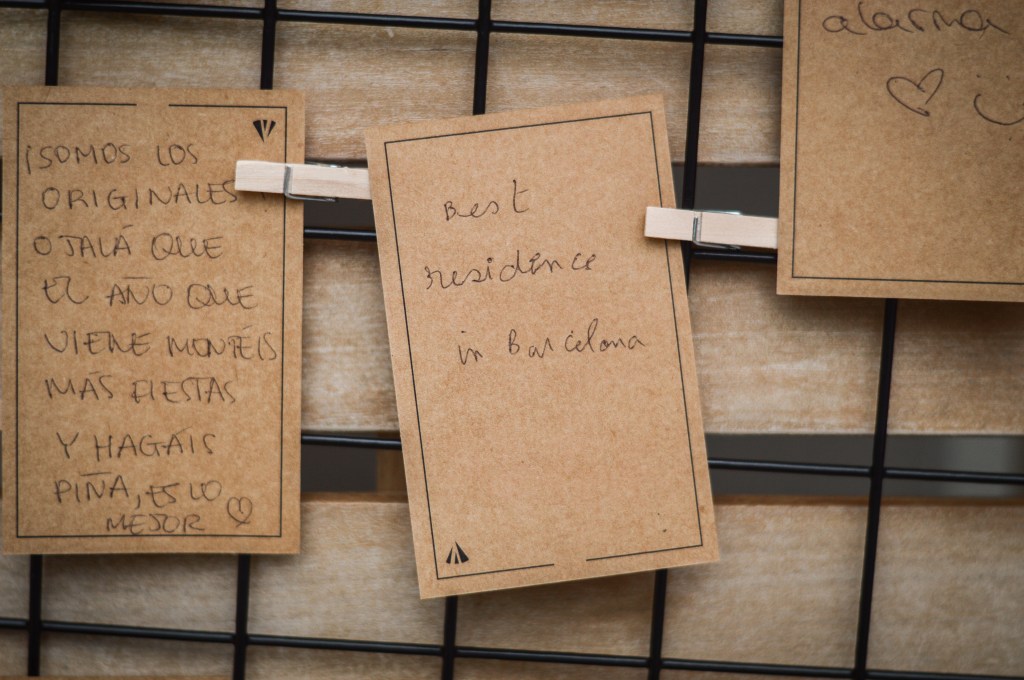 ¡SOMOS LOS
ORIGINALES
OJALÁ QUE
EL AÑO QUE
VIENE MONTÉIS
MÁS FIESTAS
Y HAGÁIS
PIÑA, ES LO
MEJOR
Best
residence
in Barcelona
alarma